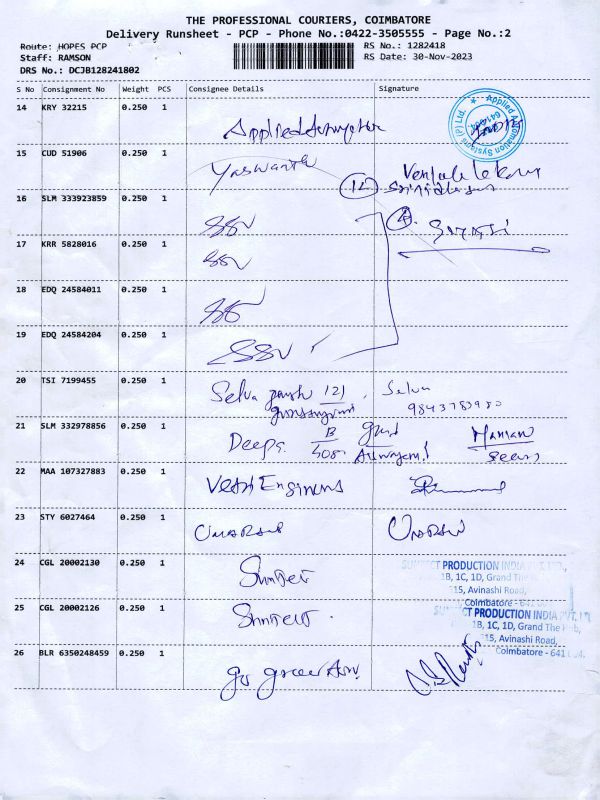 THE PROFESSIONAL COURIERS, COIMBATORE
Delivery Runsheet - PCP - Phone No.:0422-3505555 - Page No.:2
Route: HOPES PCP
RS No.: 1282418
Staff: RAMSON
RS Date: 30-Nov-2023
DRS No.: DCJB128241802
S No Consignment No Weight PCS Consignee Details Signature
14 KRY 32215 0.250 1 Applied
Applied Automation Systems (P) Ltd.
15 CUD 51906 0.250 1 Yaswanth
12
16 SLM 333923859 0.250 1 SSV
4
17 KRR 5828016 0.250 1 SSV
18 EDQ 24584011 0.250 1
19 EDQ 24584204 0.250 1 SSV
20 TSI 7199455 0.250 1 Selva 121 Selva
9843783980
21 SLM 332978856 0.250 1 Deepa B
508
22 MAA 107327883 0.250 1 Vetri Engineers
23 STY 6027464 0.250 1
24 CGL 20002130 0.250 1
PRODUCTION INDIA PVT. LTD.,
1B, 1C, 1D, Grand The
515, Avinashi Road,
Coimbatore - 641
25 CGL 20002126 0.250 1
PRODUCTION INDIA PVT. LT
1B, 1C, 1D, Grand The
515, Avinashi Road,
Coimbatore - 641
26 BLR 6350248459 0.250 1 go green